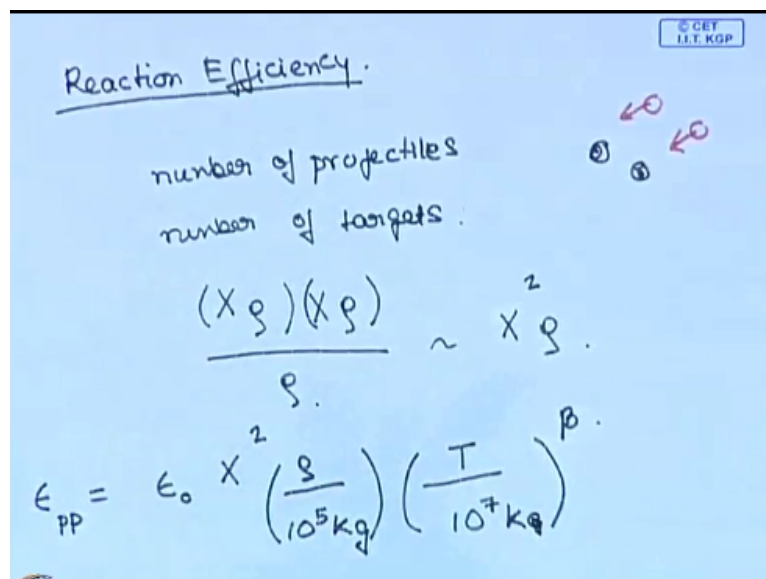 © CET
I.I.T. KGP
Reaction Efficiency.
number of projectiles
number of targets.
(Xρ)(Xρ) / ρ. ~ X² ρ.
ϵpp = ϵ₀ X² (ρ / 10⁵ kg) (T / 10⁷ kg)^β.